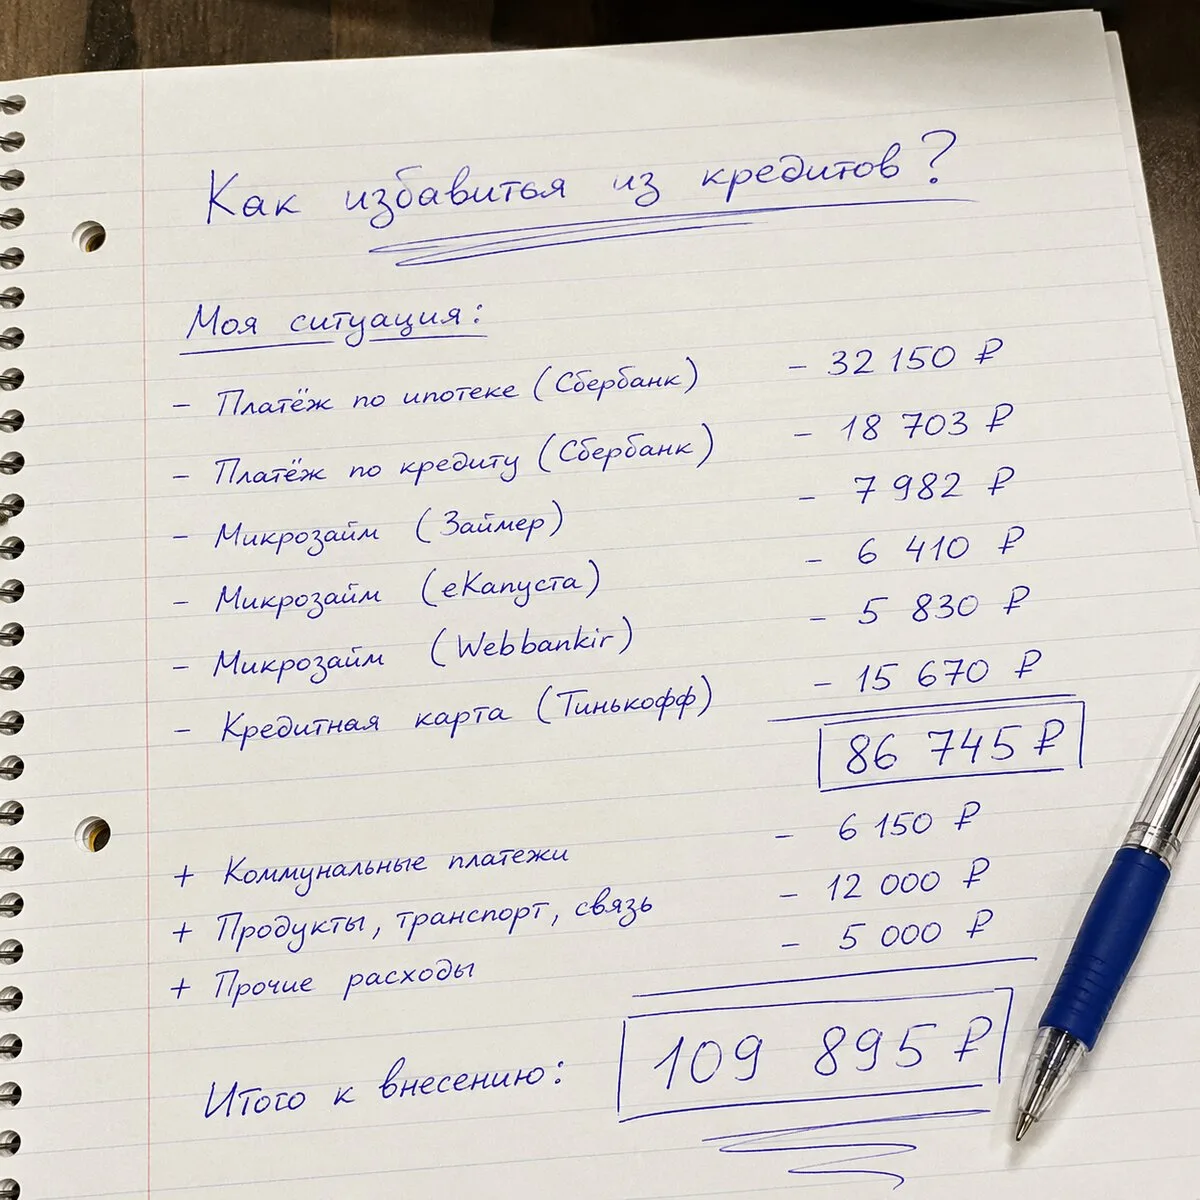 Как избавитья из кредитов?
Моя ситуация:
- Платёж по ипотеке (Сбербанк) - 32 150 ₽
- Платёж по кредиту (Сбербанк) - 18 703 ₽
- Микрозайм (Займер) - 7 982 ₽
- Микрозайм (еКапуста) - 6 410 ₽
- Микрозайм (Webbankir) - 5 830 ₽
- Кредитная карта (Тинькофф) - 15 670 ₽
86 745 ₽
+ Коммунальные платежи - 6 150 ₽
+ Продукты, транспорт, связь - 12 000 ₽
+ Прочие расходы - 5 000 ₽
Итого к внесению: 109 895 ₽